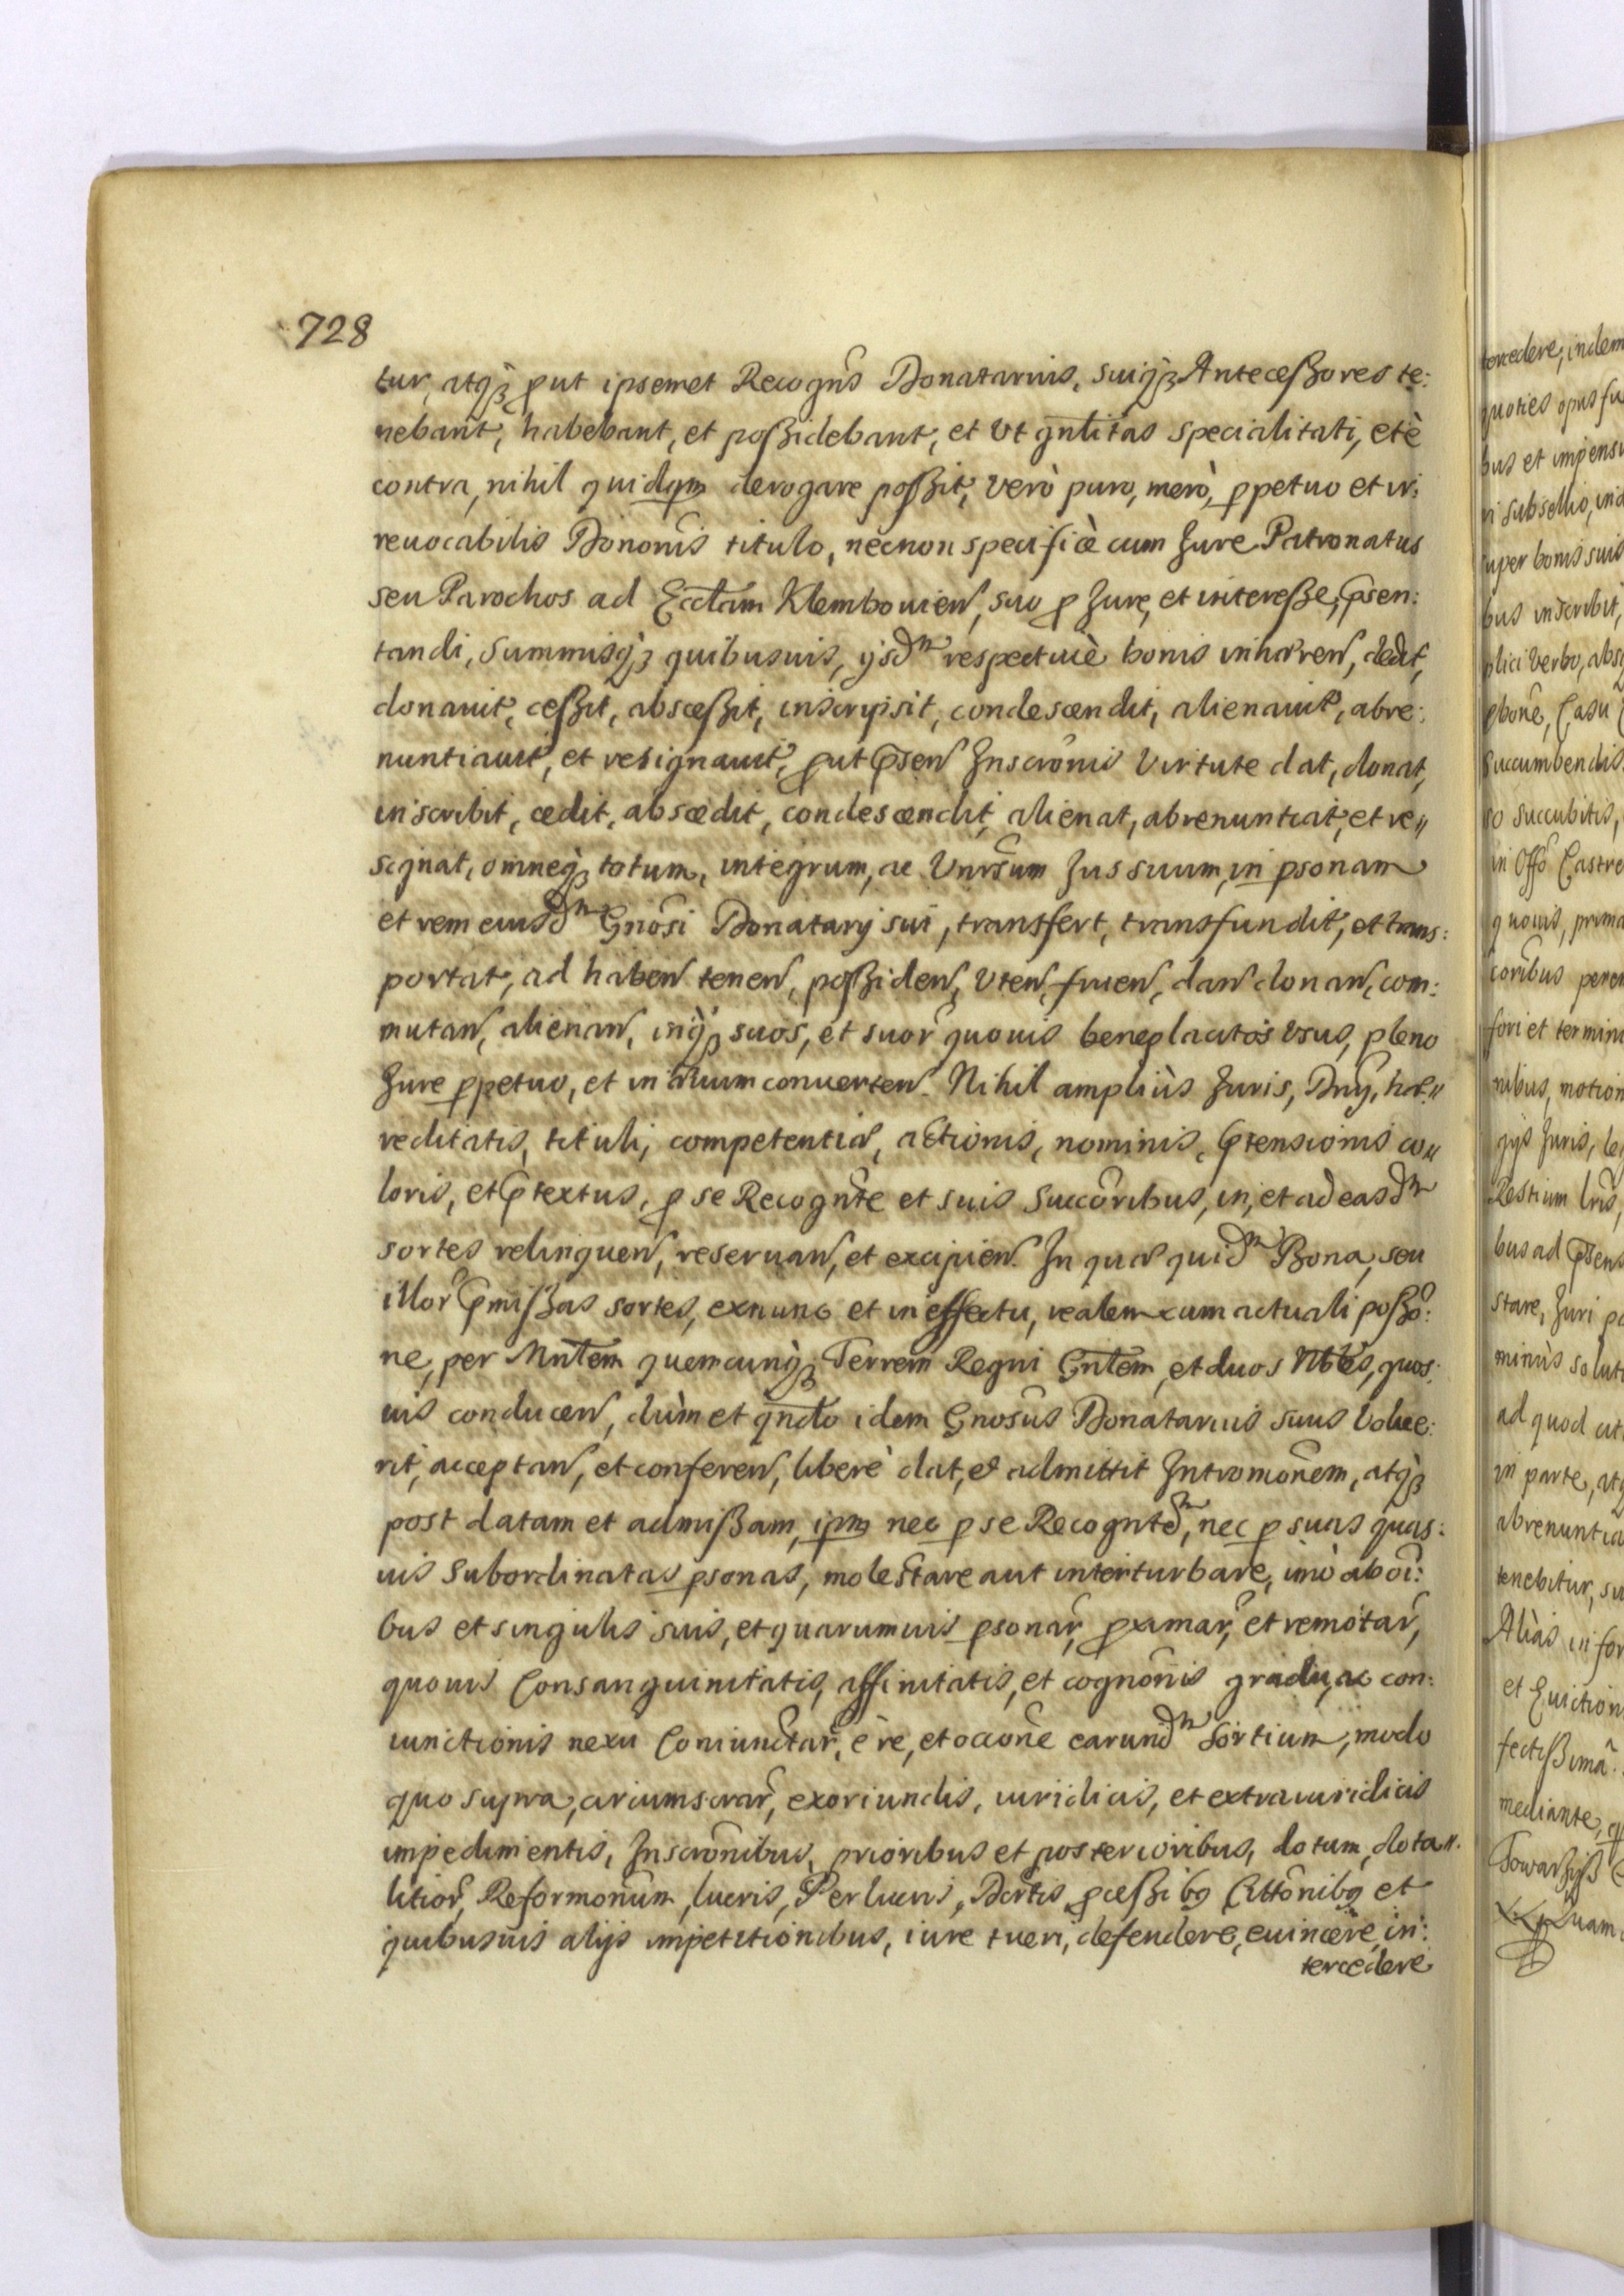 728
tur, atq₃ put ipsemet Recogns Donatarius, suiq₃ Antecessores te:
nebant, habebant, et possidebant, et Vt gnlitas specialitati, et è
contra, nihil quidqm derogare possit, verò puro, merò, ppetuo et ir:
reuocabilis Dononis titulo, necnon specificè cum Jure Patronatus
seu Parochos ad Ecclam Klembouien, suo p Jure, et interesse, psen:
tandi, Summisq₃ quibusuis, ysdm respectiuè bonis inhæren, dedit,
donauit, cessit, abscessit, inscripsit, condescendit, alienauit, abre:
nuntiauit, et resignauit, put psen Inscronis Virtute dat, donat,
inscribit, cedit, abscedit, condescendit, alienat, abrenuntiat, et re//
signat, omneq₃ totum, integrum, ac Vnirsum Jus suum, in psonam
et rem eiusdm Gnosi Donatarij sui, transfert, transfundit, et trans:
portat, ad haben tenen, possiden, Vten, fruen, dan donan, com:
mutan, alienan, inq₃ suos, et suor quouis beneplacitos vsus, pleno
Jure ppetuo, et in æuum conuerten. Nihil ampliùs Juris, Dnij, hæ//
reditatis, tituli, competentiæ, actionis, nominis, ptensionis co//
loris, et ptextus, p se Recognte et suis Succoribus, in, et ad easdm
sortes relinquen, reseruan, et excipien. In quæ quidm Bona, seu
illor pmissas sortes, exnunc et in effectu, realem cum actuali posso:
ne, per Mntem quemcunq₃ Terrem Regni Gnlem, et duos Nbles, quos:
uis conducen, dùm et qndo idem Gnosus Donatarius suus Volue:
rit, acceptan, et conferen, liberè dat, et admittit Intromonem, atq₃
post datam et admissam, ipm nec p se Recogntdm, nec p suas quas:
uis Subordinatas psonas, molestare aut interturbare, imò ab oi:
bus et singulis suis, et quarumuis psonar, pximar, et remotar,
quouis Consanguinitatis, affinitatis, et cognonis gradu, ac con:
iunctionis nexu Coniunctar, è re, et occone earundm Sortium, modo
quo supra, circumscrar, exoriundis, iuridicis, et extraiuridicis
impedimentis, Inscronibus, prioribus et posterioribus, dotum, dota//
litior, Reformonum, lucris, Perlucris, Dectis pcessibq Cittonibq et
quibusuis alijs impetitionibus, iure tueri, defendere, euincere, in:
tercedere